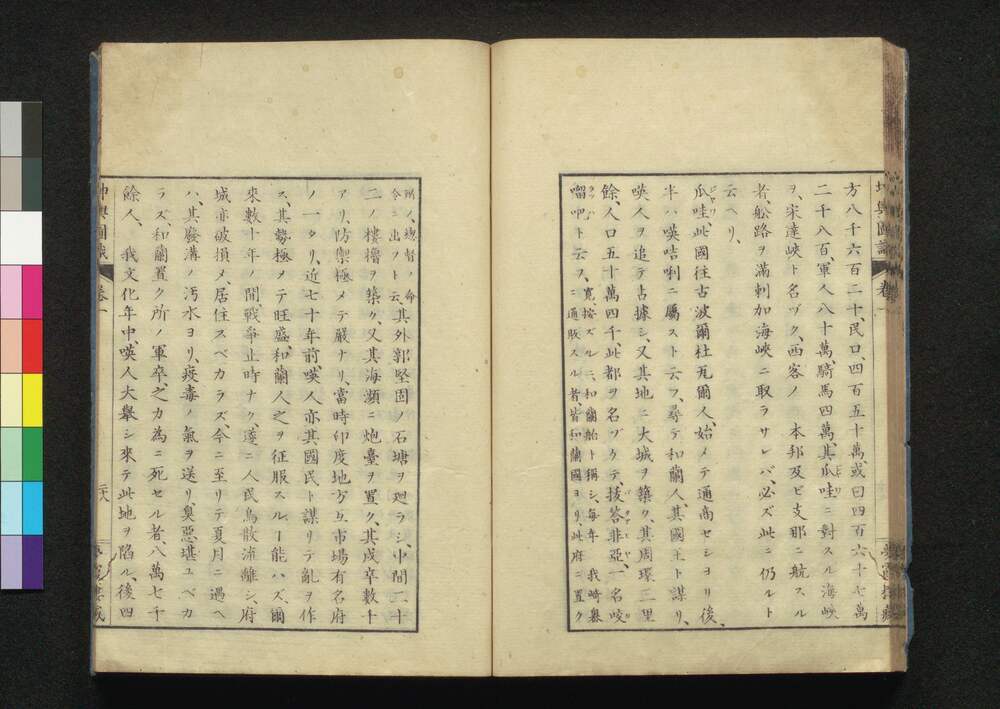 坤輿圖識
卷一
方八千六百二十、民口、四百五十萬、或曰四百六十七萬
二千八百、軍人八十萬、騎馬四萬、其瓜哇ニ對スル海峽
ヲ、宋達峽ト名ヅク、西客ノ 本邦及ビ支那ニ航スル
者、舩路ヲ滿剌加海峽ニ取ラサレバ、必ズ此ニ仍ルト
云ヘリ、
瓜哇此國往古波爾杜瓦爾人、始メテ通商セシヨリ後、
半ハ暎咭唎ニ屬スト云フ、尋デ和蘭人、其國王ト謀リ、
暎人ヲ追テ占據シ、又其地ニ大城ヲ築ク、其周環三里
餘、人口五十萬四千、此都ヲ名ヅケテ、拔答非亞一名咬
𠺕吧ト云フ、寛、按ズルニ、和蘭舶ト稱シ、毎年 我崎嶴
ニ通販スル者、皆和蘭國ヨリ、此府ニ置ク
所ノ、總督ノ命
令ニ出ツト云、其外郭堅固ノ石塘ヲ廻ラシ、中間二十
二ノ樓櫓ヲ築ク、又其海瀕ニ炮臺ヲ置ク、其戍卒數十
アリ、防禦極メテ嚴ナリ、當時印度地方互市場有名府
ノ一タリ、近七十年前暎人亦其國民ト謀リテ亂ヲ作
ス、其勢極メテ旺盛、和蘭人之ヲ征服スルヿ能ハズ、爾
來數十年ノ間、戰爭止時ナク、遂ニ人民烏散流離シ、府
城亦破損メ、居住スベカラズ、今ニ至リテ夏月ニ遇ヘ
ハ、其廢溝ノ汚水ヨリ、疫毒ノ氣ヲ送リ、臭惡堪ユベカ
ラズ、和蘭置ク所ノ軍卒、之カ為ニ死セル者、八萬七千
餘人、 我文化年中、暎人大擧シ來テ此地ヲ陷ル、後四
坤輿圖識
卷一
二十八